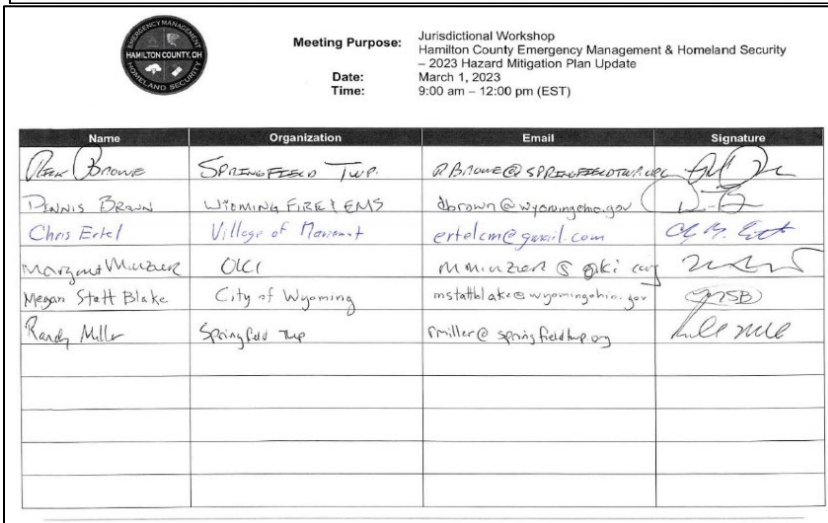 EMERGENCY MANAGEMENT
HAMILTON COUNTY, OH
HOMELAND SECURITY
Meeting Purpose: Jurisdictional Workshop
Hamilton County Emergency Management & Homeland Security
– 2023 Hazard Mitigation Plan Update
Date: March 1, 2023
Time: 9:00 am – 12:00 pm (EST)
Name Organization Email Signature
Browe SPRINGFIELD TWP. RBROWE@SPRINGFIELDTWP.ORG
DENNIS BROWN WYOMING FIRE/EMS dbrown@wyomingohio.gov
Chris Ertel Village of Mariemont ertelcm@gmail.com
Margaret Minzner OKI mminzner@oki.org
Megan Statt Blake City of Wyoming mstattblake@wyomingohio.gov MSB
Randy Miller Springfield Twp rmiller@springfieldtwp.org